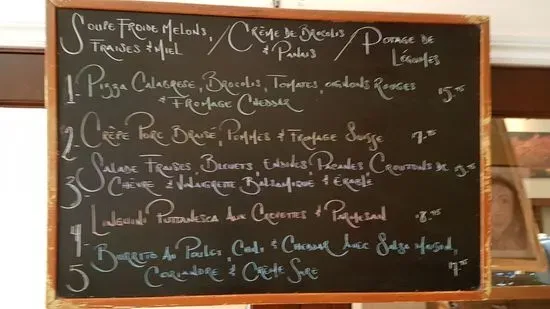 Soupe Froide Melons, / Crème de Brocolis / Potage de
Fraises & Miel & Panais Légumes
1- Pizza Calabrese, Brocolis, Tomates, oignons Rouges
& Fromage Cheddar 15.95
2- Crêpe Porc Braisé, Pommes & Fromage Suisse 17.95
3- Salade Fraises, Bleuets, Endives, Pacanes Croutons de
Chèvre & Vinaigrette Balsamique & Érable
4- Linguini Puttanesca Aux Crevettes & Parmesan 18.95
5 Burrito Au Poulet, & Cheddar Avec Salsa Maison,
Coriandre & Crème Sure 17.95